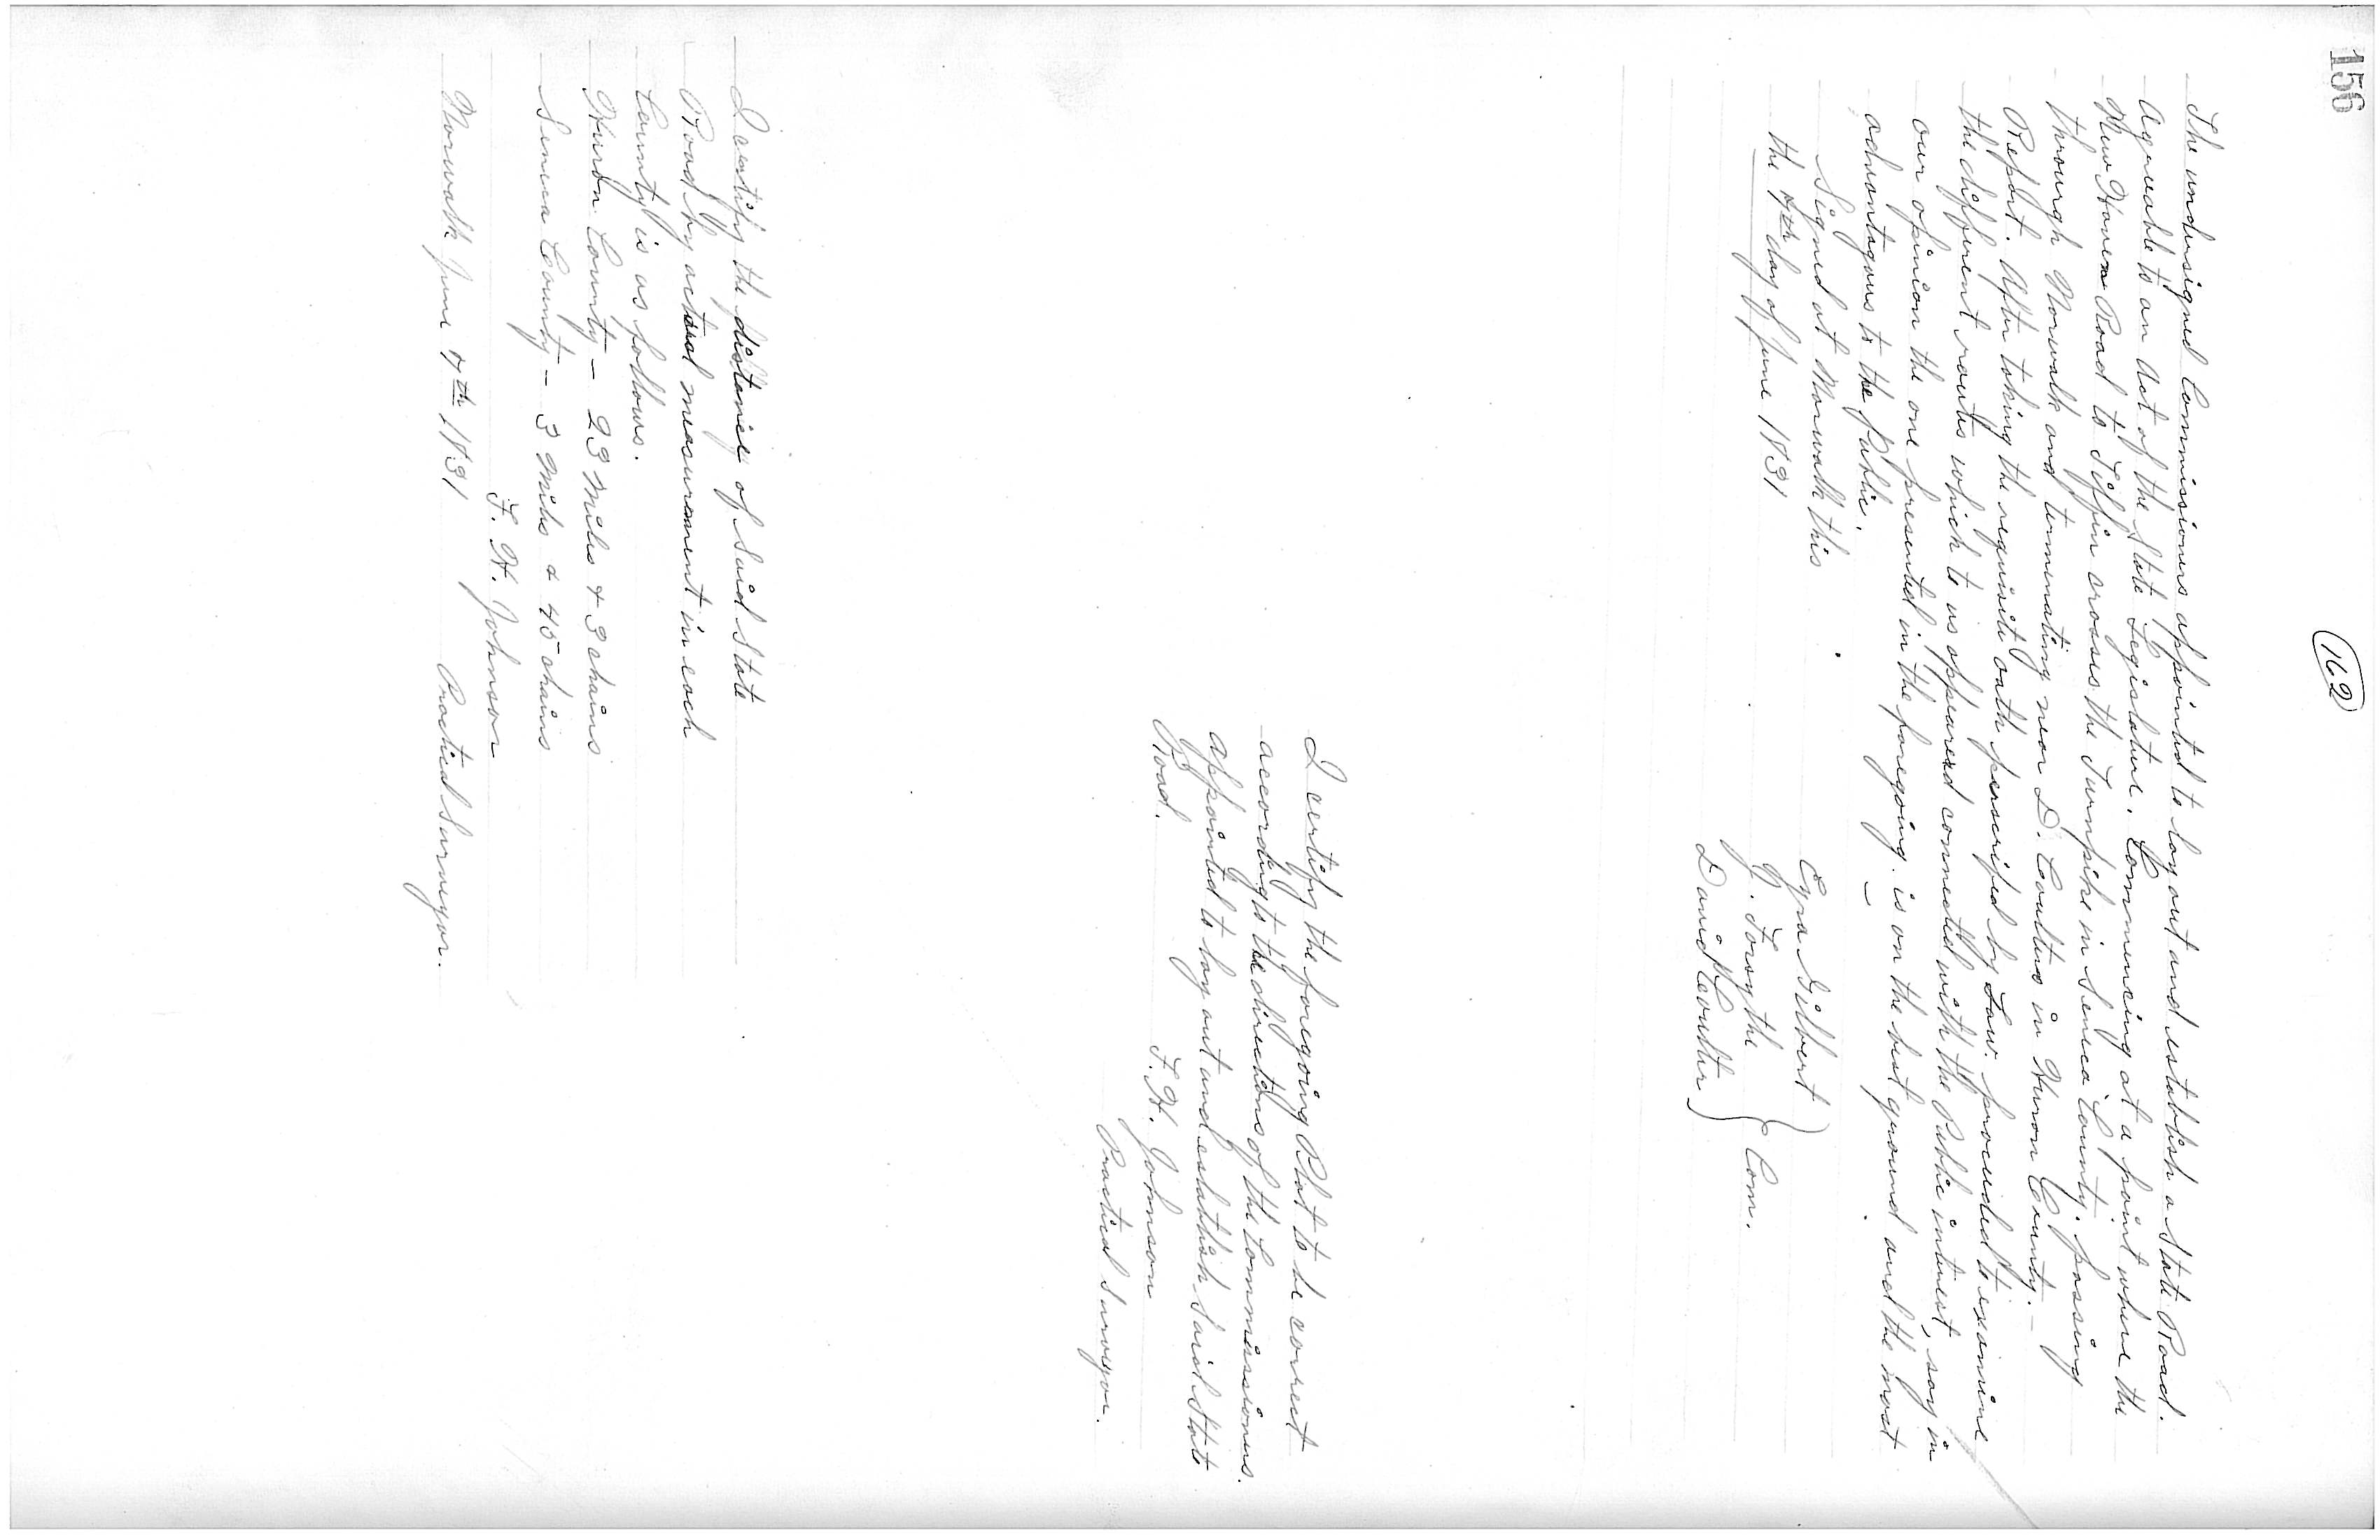 156
162
The undersigned Commissioners appointed to lay out and establish a State Road.
Agreeable to an Act of the State Legislature. Commencing at a point where the
New Haven Road to Tiffin crosses the Turnpike in Seneca County. passing
through Norwalk and terminating near D. Coulters in Huron County. —
Report. After taking the requisite oath perscrifed by Law. proceeded to examine
the different routes which to us appeared connected with the Public interest, say in
our opinion the one presented in the foregoing. is on the best ground and the most
advantageous to the Public. —
Signed at Norwalk this
the 4th day of June 1831
Ezra Gilbert
J. Forsythe } Com.
David Coulter
I certify the foregoing Plat to be correct
according to the directions of the Commissioners.
appointed to lay out and establish Said State
Road.
F. H. Johnson
Practical Surveyor.
I certify the distance of Said State
Road by actual measurement in each
County is as follows.
Huron County — 23 Miles & 3 chains
Seneca County — 3 Miles & 45 chains
F. H. Johnson
Norwalk June 4th, 1831 Practical Surveyor.